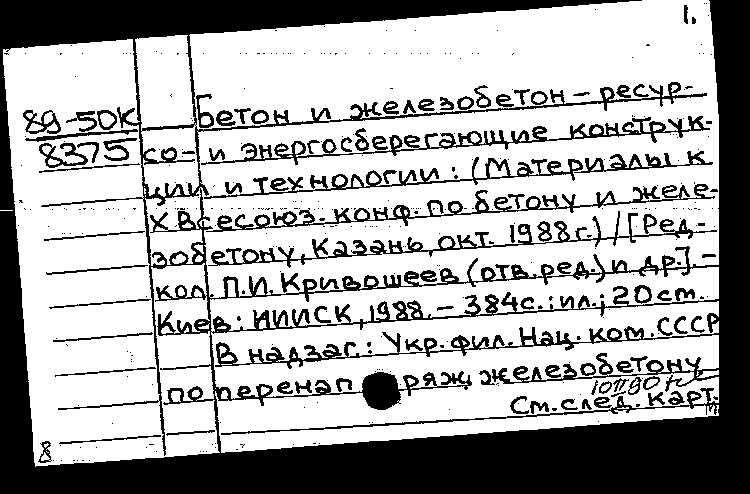 1.
89-50К Бетон и железобетон – ресур-
8375 со- и энергосберегающие конструк-
ции и технологии: (Материалы к
X Всесоюз. конф. по бетону и желе-
зобетону, Казань, окт. 1988г.) / [Ред-
кол. П.И. Кривошеев (отв.ред.) и др.]. –
Киев: НИИСК, 1988. – 384с.: ил.; 20см.
В надзаг.: Укр. фил. Нац. ком. СССР
по перенап ряж. железобетону
См. след. карт.
8